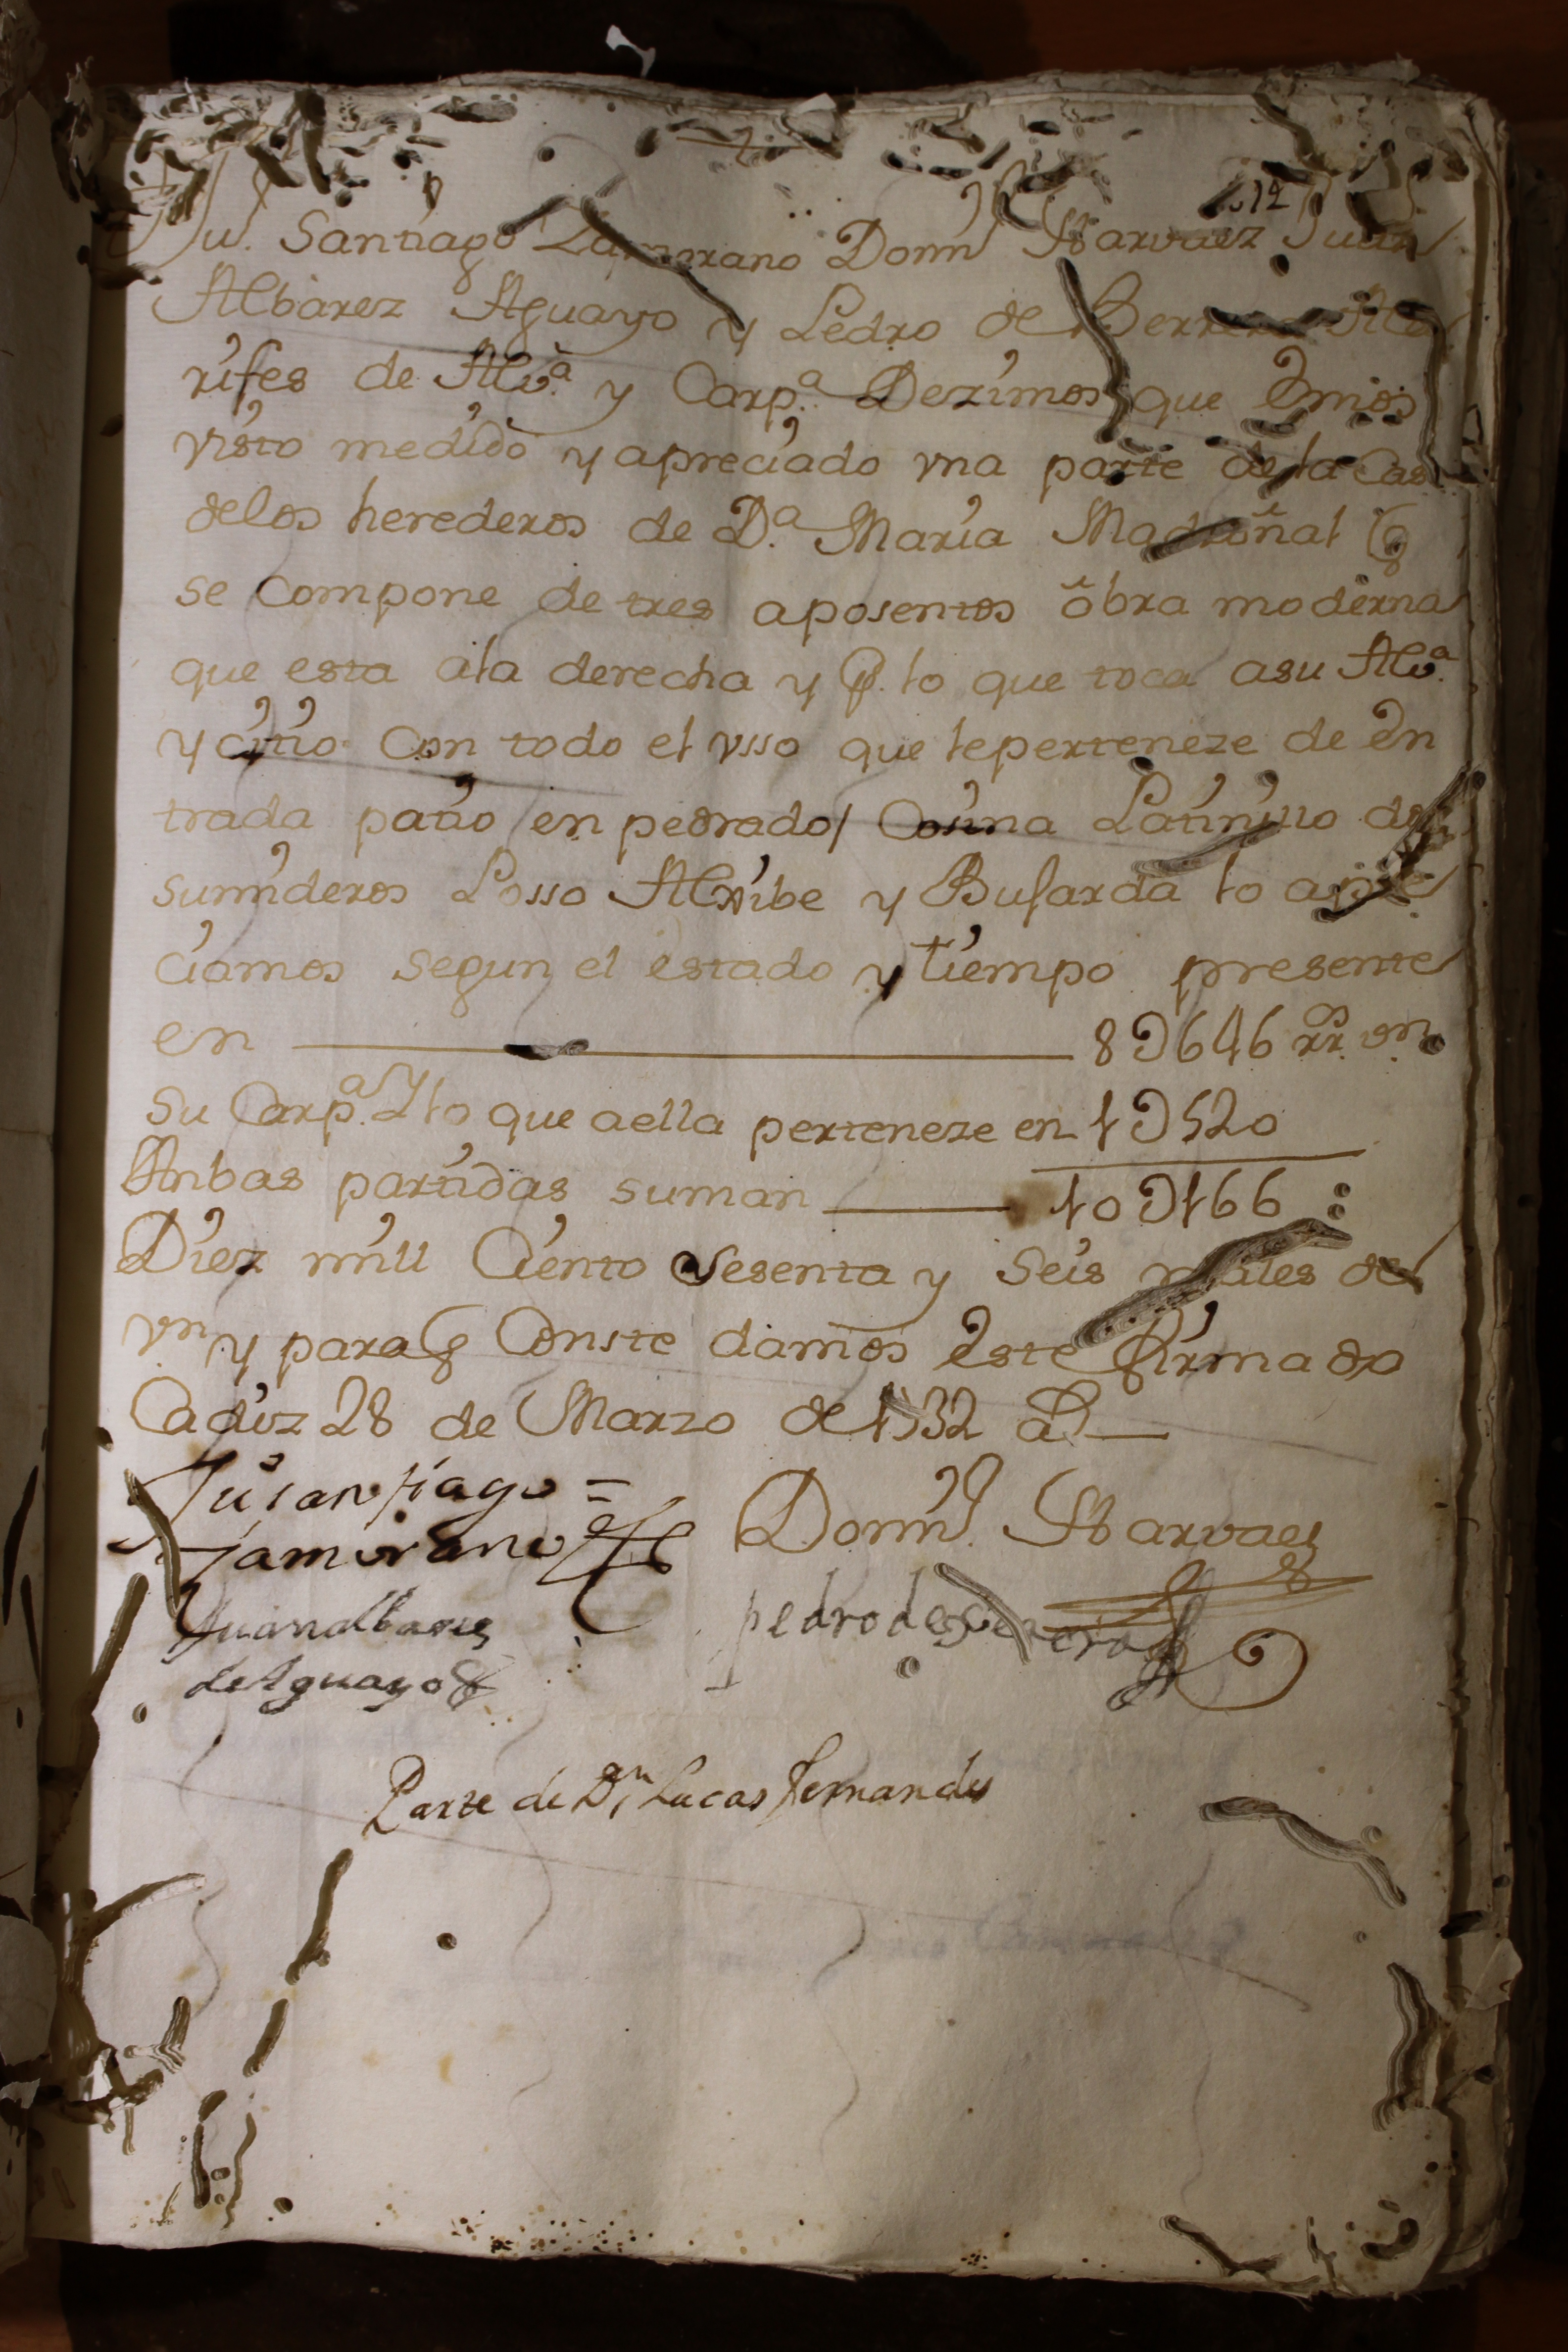 12
Ju. Santiago Zamorano Domº Narvaez Juan
Albarez Aguayo y Pedro de Herrera Ala
rifes de Albª y Carpª Dezimos que emos
visto medido y apreciado vna parte de la Cas
delos herederos de Dª Maria Madroñal q
se Compone de tres aposentos obra moderna
que esta ala derecha y p. lo que toca asu Albª
y citio Con todo el vsso que leperteneze de en
trada patio enpedrado Cosina Patinillo de
sumideros Posso Alxibe y Bufarda lo apre
ciamos segun el estado y tiempo presente
en 8Ꝺ646 rrˢ vn
su Carpª y lo que aella perteneze en 1Ꝺ520
Anbas partidas suman 10Ꝺ166
Diez mill Ciento sesenta y seis reales de
vn y paraq Conste damos este firmado
Cadiz 28 de Marzo de 1732 aˢ
Ju santiago =
Zamorano
Domº Narvaez
Juan albares
de Aguayo
pedro de Herrera
Parte de Dn Lucas Fernandes